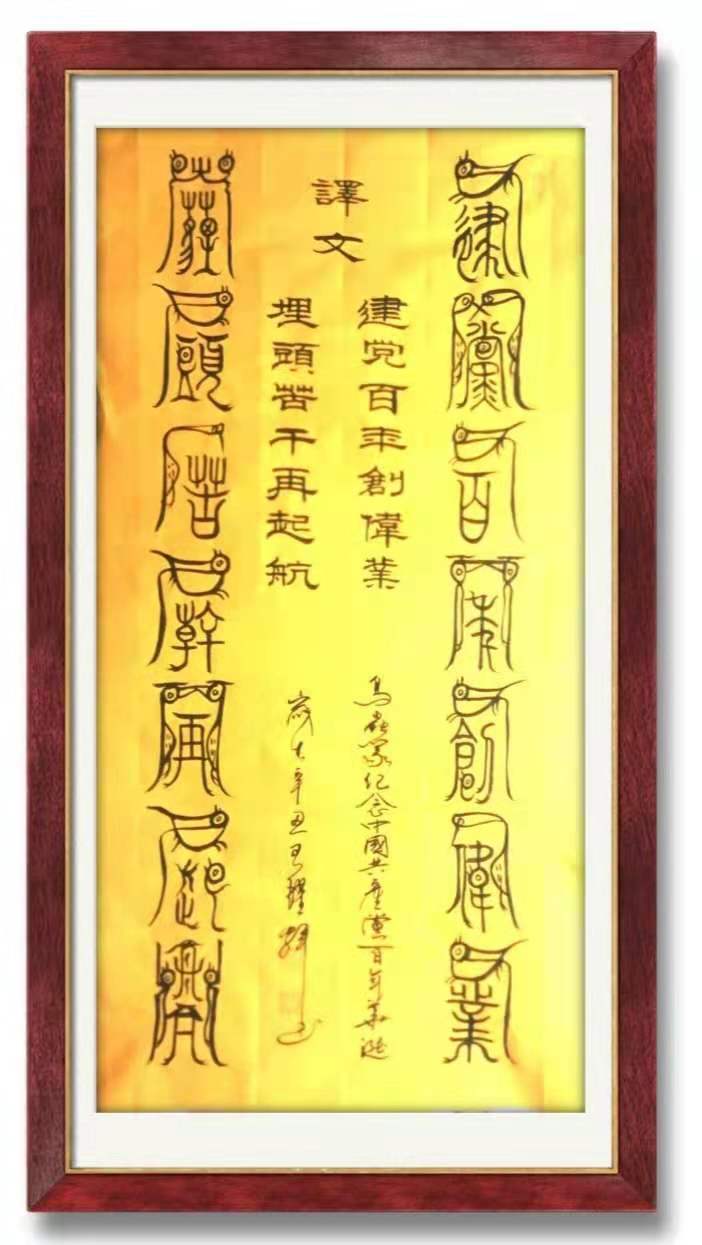 建黨百年創偉業
譯文
建党百年創偉業
埋頭苦干再起航
鳥蟲篆纪念中國共產黨百年華誕
歲在辛丑王耀
薶頭苦幹再起航